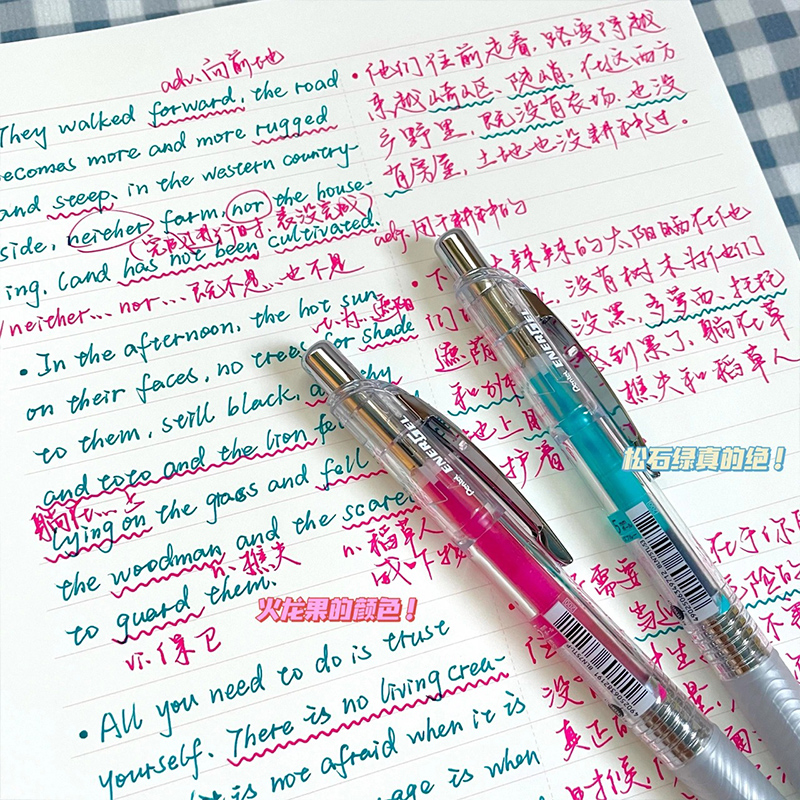 adv. 向前地
They walked forward, the road
ecomes more and more rugged
and steep, in the western country-
side, neither farm, nor the house-
(完成进行时, 表没完成)
ing, land has not been cultivated.
neither... nor... 既不是, 也不是
• In the afternoon, the hot sun
vi. 为...遮阳
on their faces, no trees for shade
to them, still black,
and toto and the lion fe
躺在...上
lying on the grass and fell
the woodman and the scare
n. 樵夫
n. 稻草人
to guard them.
vi. 保卫
• All you need to do is trust
yourself. There is no living crea-
it is not afraid when it is
age is when
• 他们往前走着, 路变得越
来越崎岖、陡峭, 在这西方
乡野里, 既没有农场, 也没
有房屋, 土地也没耕种过。
adj. 用于耕种的
• 下 火辣辣的太阳晒在他
们 没有树木为他们
遮荫 没黑, 多萝西、托托
和 感到累了, 躺在草
地上 樵夫和稻草人
护着
松石绿真的绝！
火龙果的颜色！
Pentel ENERGEL
Pentel ENERGEL
在于你
需要
危险的
真正的
时候